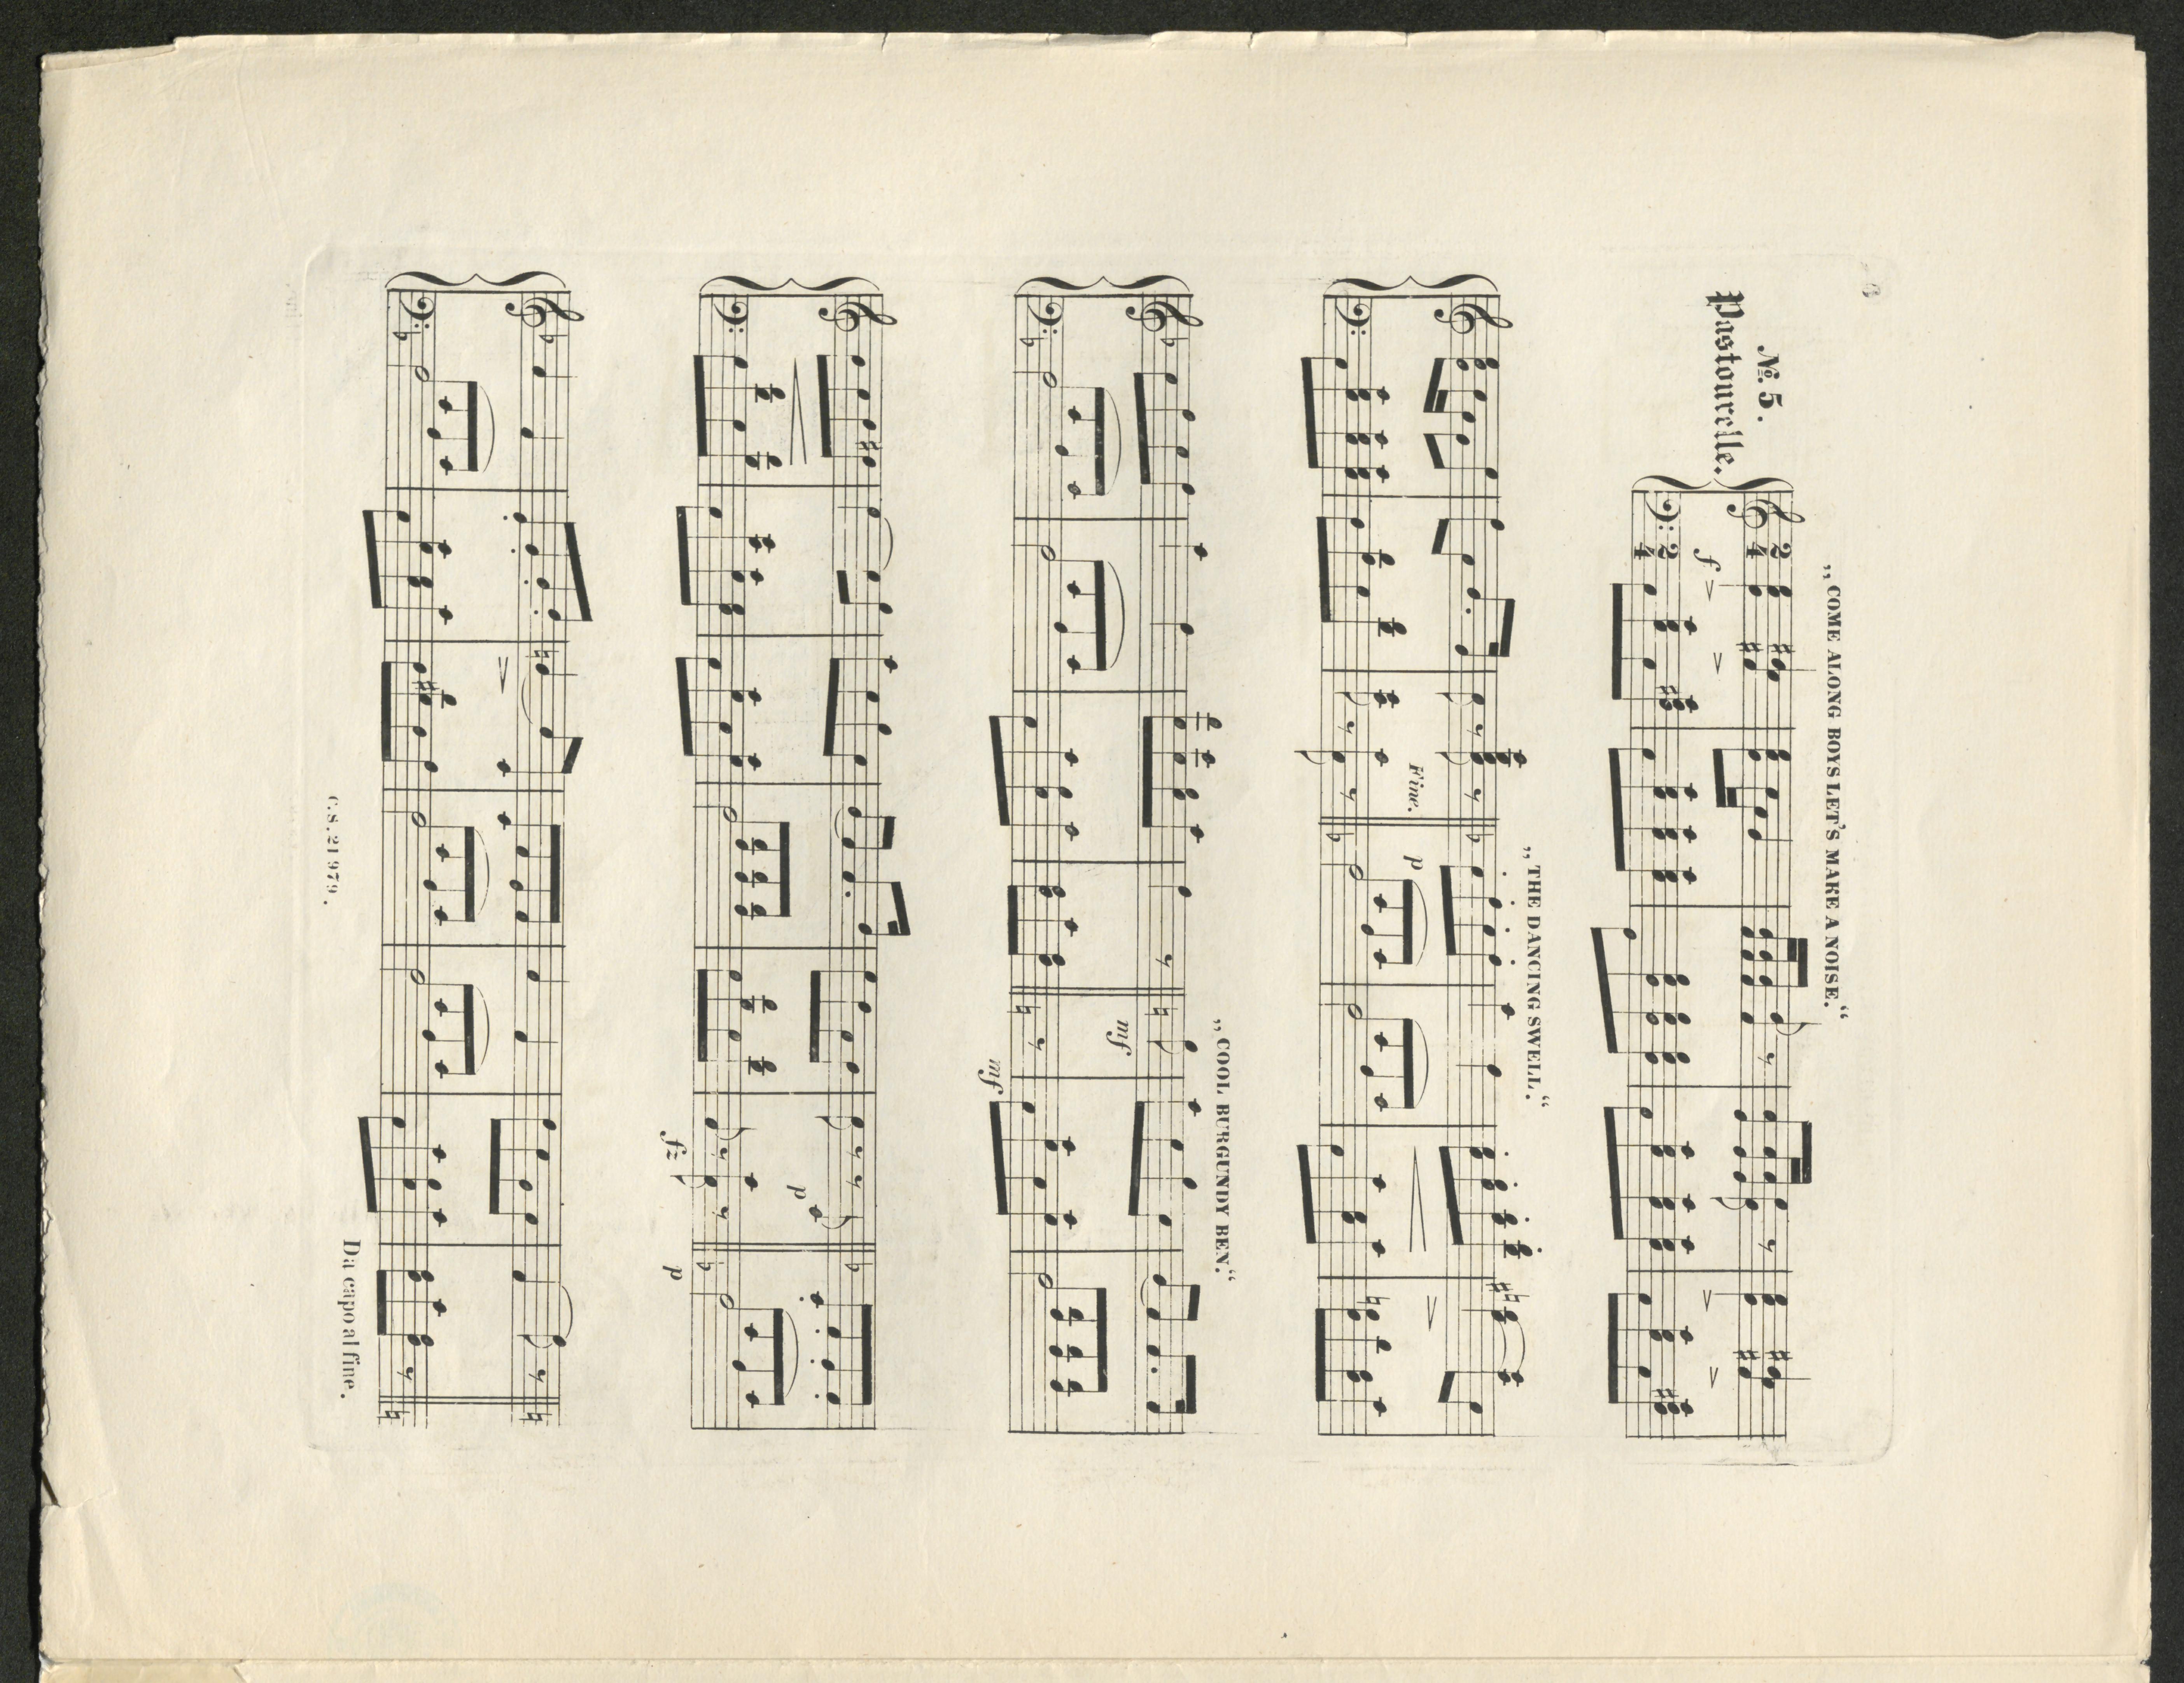 6
„COME ALONG BOYS LET'S MAKE A NOISE.“
№. 5.
Pastourelle.
2 2
4 4
f
„THE DANCING SWELL.“
Fine.
p
„COOL BURGUNDY BEN.“
mf
mf
p
fz
p
C.S. 21979.
Da capo al fine.